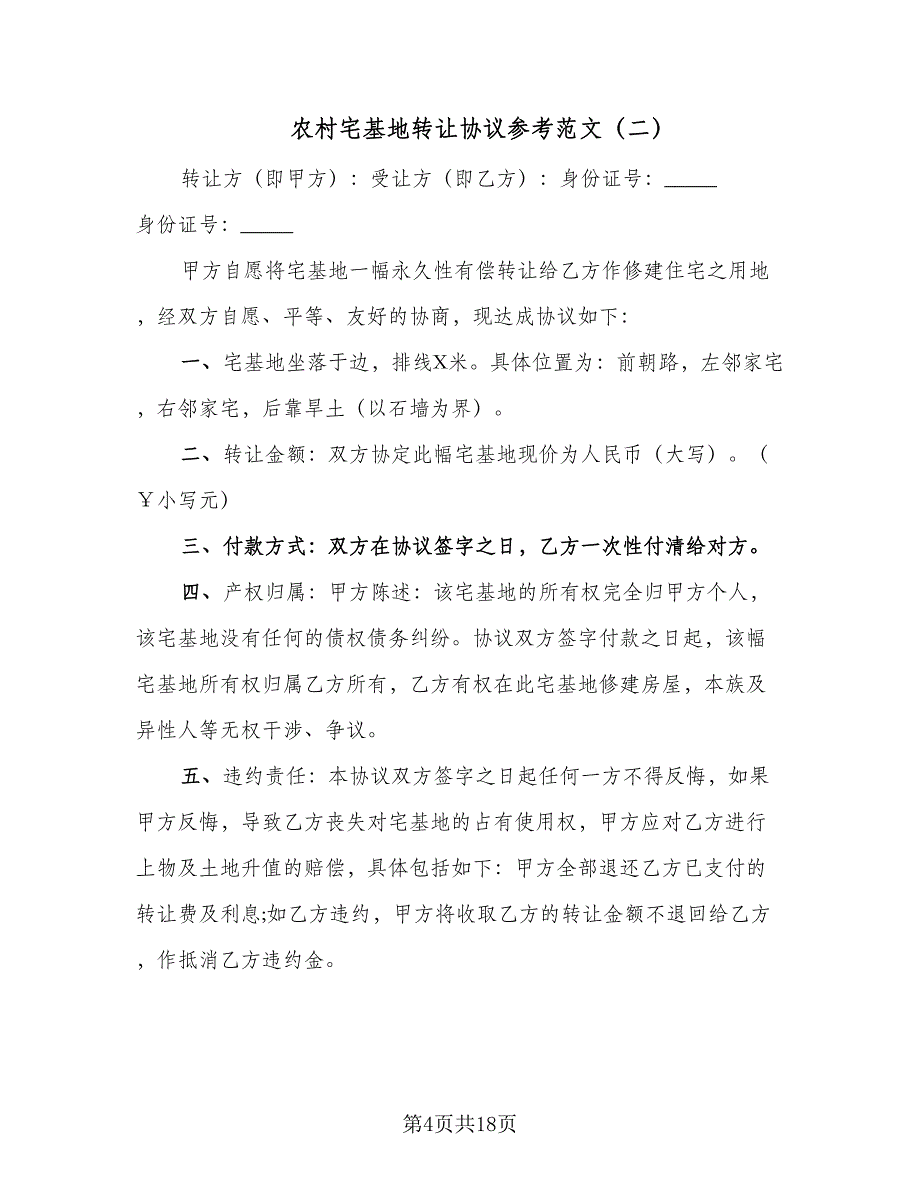 农村宅基地转让协议参考范文（二）
转让方（即甲方）：受让方（即乙方）：身份证号：_____
身份证号：_____
甲方自愿将宅基地一幅永久性有偿转让给乙方作修建住宅之用地
，经双方自愿、平等、友好的协商，现达成协议如下：
一、宅基地坐落于边，排线X米。具体位置为：前朝路，左邻家宅
，右邻家宅，后靠旱土（以石墙为界）。
二、转让金额：双方协定此幅宅基地现价为人民币（大写）。（
￥小写元）
三、付款方式：双方在协议签字之日，乙方一次性付清给对方。
四、产权归属：甲方陈述：该宅基地的所有权完全归甲方个人，
该宅基地没有任何的债权债务纠纷。协议双方签字付款之日起，该幅
宅基地所有权归属乙方所有，乙方有权在此宅基地修建房屋，本族及
异性人等无权干涉、争议。
五、违约责任：本协议双方签字之日起任何一方不得反悔，如果
甲方反悔，导致乙方丧失对宅基地的占有使用权，甲方应对乙方进行
上物及土地升值的赔偿，具体包括如下：甲方全部退还乙方已支付的
转让费及利息;如乙方违约，甲方将收取乙方的转让金额不退回给乙方
，作抵消乙方违约金。
第4页共18页